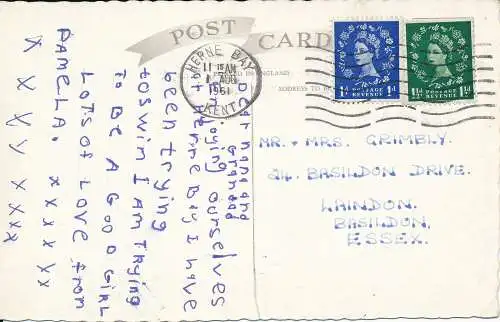 POST CARD
HERNE BAY
11 15 AM
1 AUG
1961
KENT
1D POSTAGE REVENUE 1D
1½D POSTAGE REVENUE 1½D
ADDRESS TO BE
Dear nana and
Grandad
enjoying ourselves
at Herne Bay I have
been trying
to swim I am trying
to BE A GOOD GiRL
LOTS of Love from
PAMELA. x x x x x x
x x x x x x x
MR. + MRS. GRIMBLY.
24. BASILDON DRIVE.
LAINDON.
BASILDON,
ESSEX.